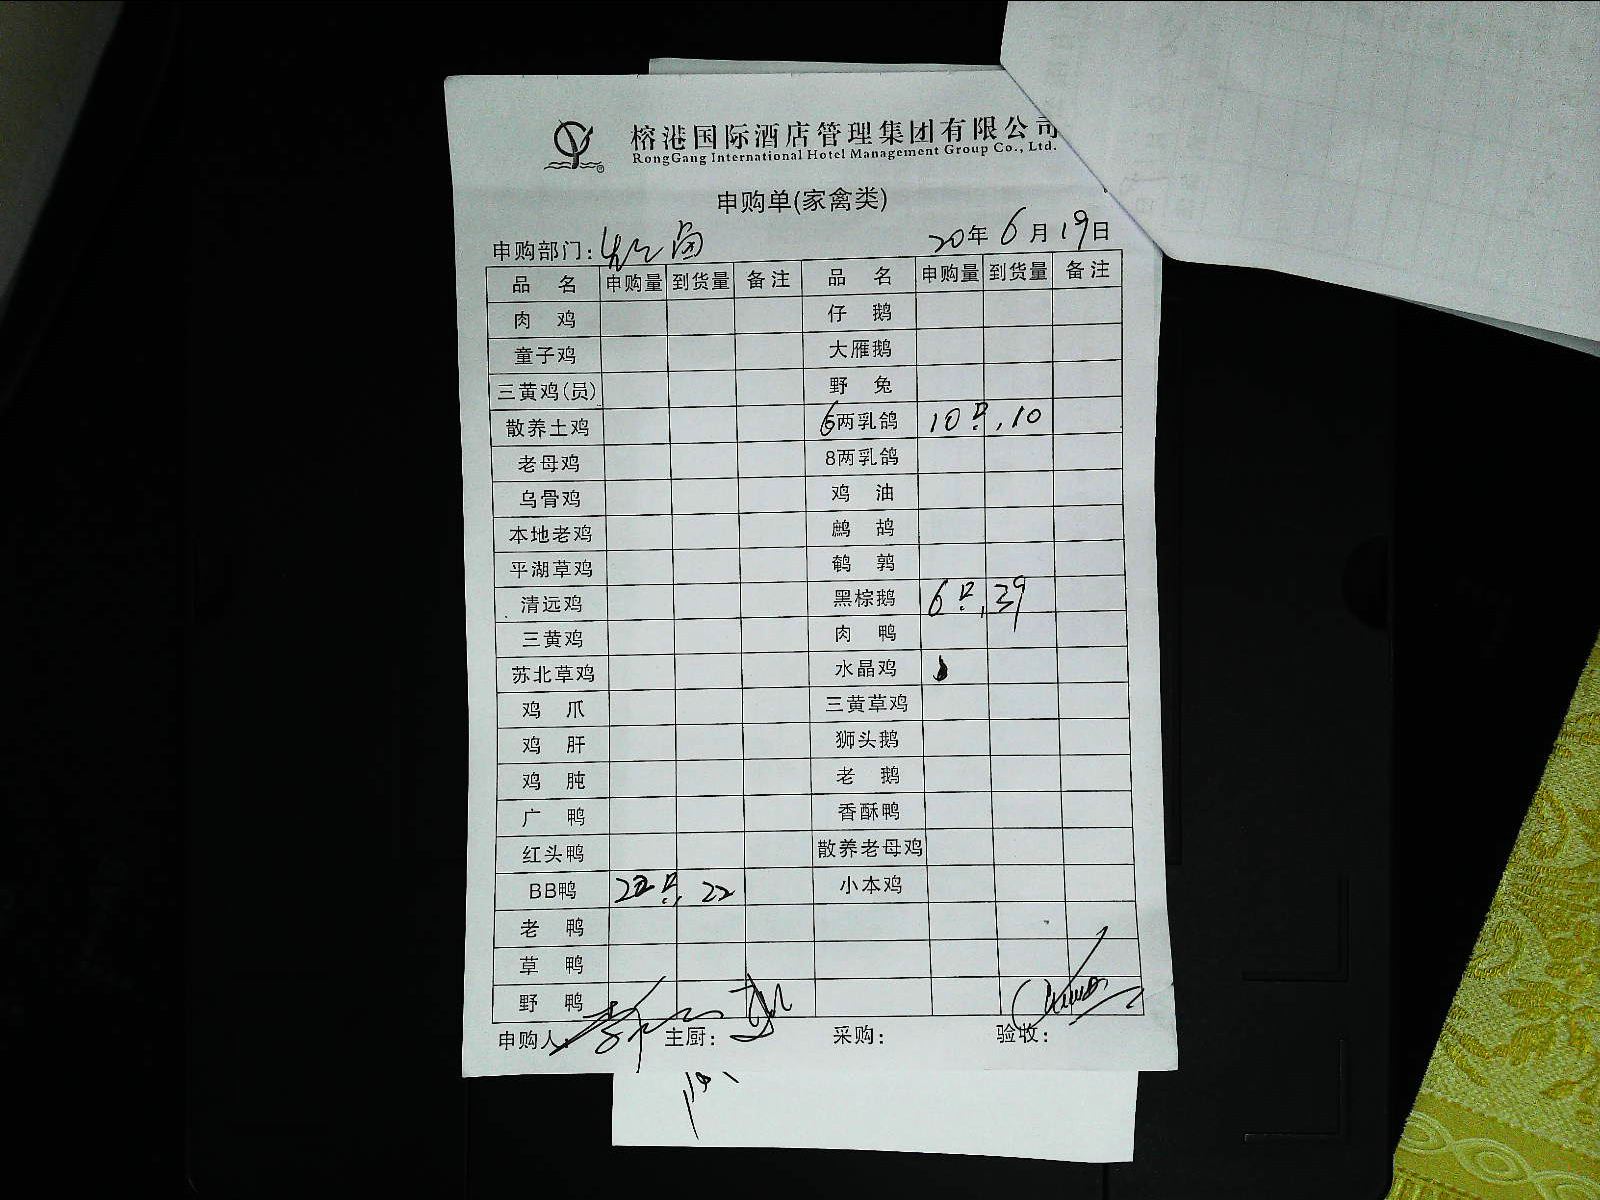 榕港国际酒店管理集团有限公司
RongGang International Hotel Management Group Co., Ltd.
申购单(家禽类)
申购部门: 20年 6月 19日
品名 申购量 到货量 备注 品名 申购量 到货量 备注
肉鸡 仔鹅
童子鸡 大雁鹅
三黄鸡(员) 野兔
散养土鸡 6两乳鸽 10只, 10
老母鸡 8两乳鸽
乌骨鸡 鸡油
本地老鸡 鹧鸪
平湖草鸡 鹌鹑
清远鸡 黑棕鹅 6只, 39
三黄鸡 肉鸭
苏北草鸡 水晶鸡
鸡爪 三黄草鸡
鸡肝 狮头鹅
鸡肫 老鹅
广鸭 香酥鸭
红头鸭 散养老母鸡
BB鸭 22只, 22 小本鸡
老鸭
草鸭
野鸭
申购人: 主厨: 采购: 验收: